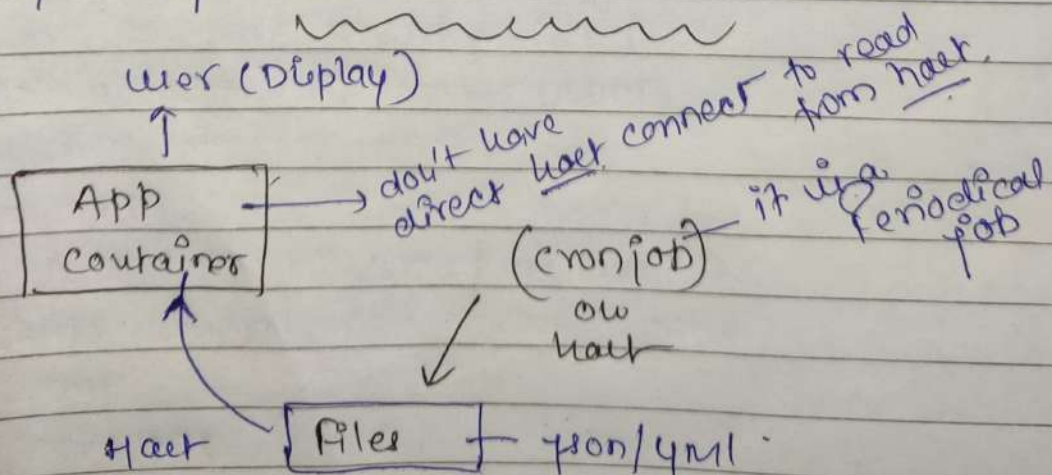 user (Display)
App
container
don't have
direct host connect to read
from host.
it is a
periodical
job
(cronjob)
on
host
Host
Files
json/yml.